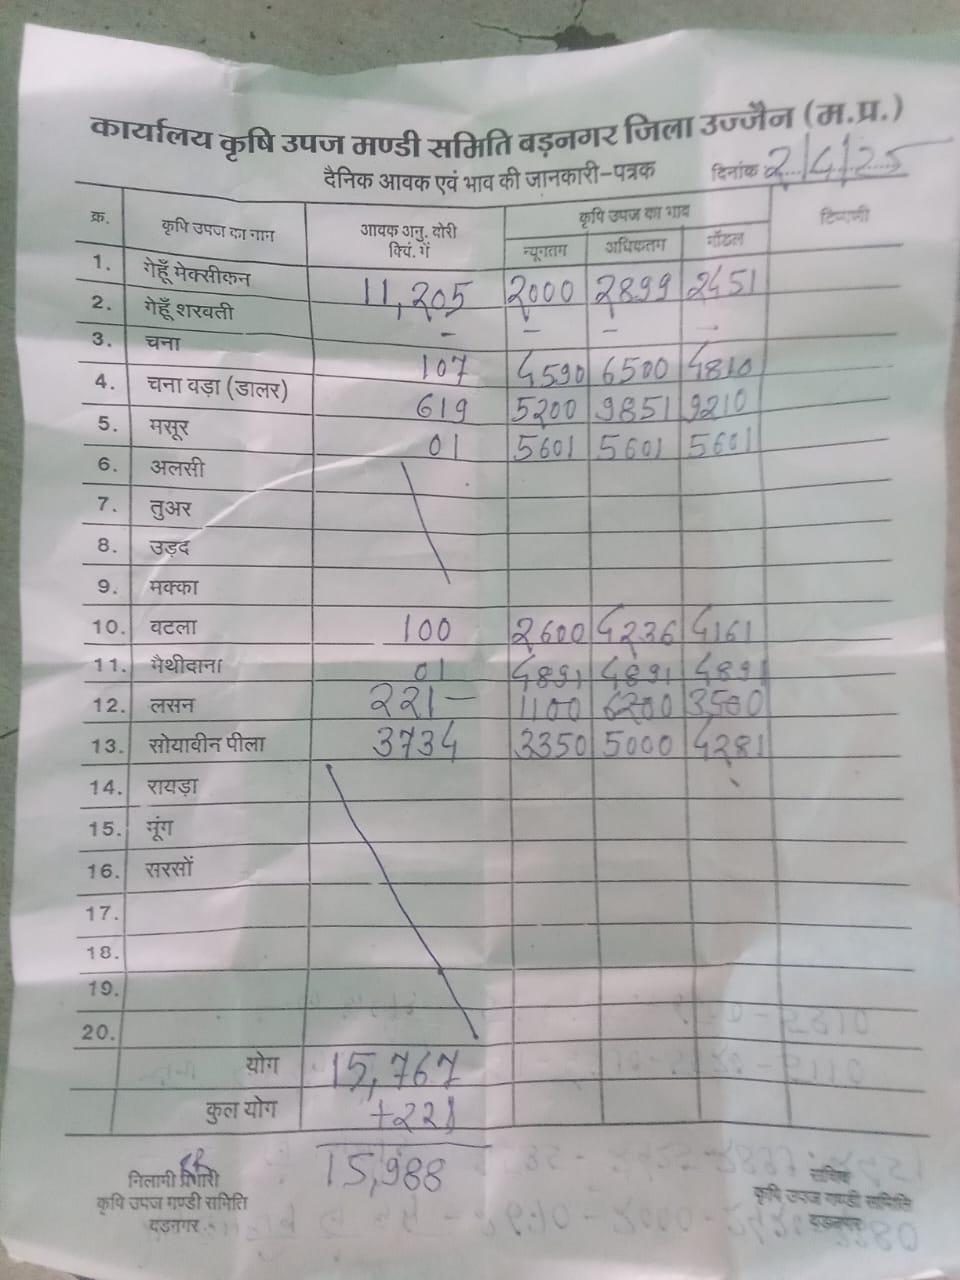 कार्यालय कृषि उपज मण्डी समिति बड़नगर जिला उज्जैन (म.प्र.)
दैनिक आवक एवं भाव की जानकारी-पत्रक दिनांक 2/4/25
क्र. कृषि उपज का नाम आवक अनु. बोरी क्विं. में कृषि उपज का भाव टिप्पणी
न्यूनतम अधिकतम मॉडल
1. गेहूँ मेक्सीकन 11,205 2000 2899 2451
2. गेहूँ शरवती - - - -
3. चना 107 4590 6500 4810
4. चना वड़ा (डालर) 619 5200 9851 9210
5. मसूर 01 5601 5601 5601
6. अलसी
7. तुअर
8. उड़द
9. मक्का
10. वटला 100 2600 4236 4161
11. मैथीदाना 01 4891 4891 4891
12. लसन 221- 1100 6200 3500
13. सोयावीन पीला 3734 3350 5000 4281
14. रायड़ा
15. मूंग
16. सरसों
17.
18.
19.
20.
योग 15,767
कुल योग +221
15,988
निलामी प्रभारी सचिव
कृषि उपज मण्डी समिति कृषि उपज मण्डी समिति
बड़नगर बड़नगर